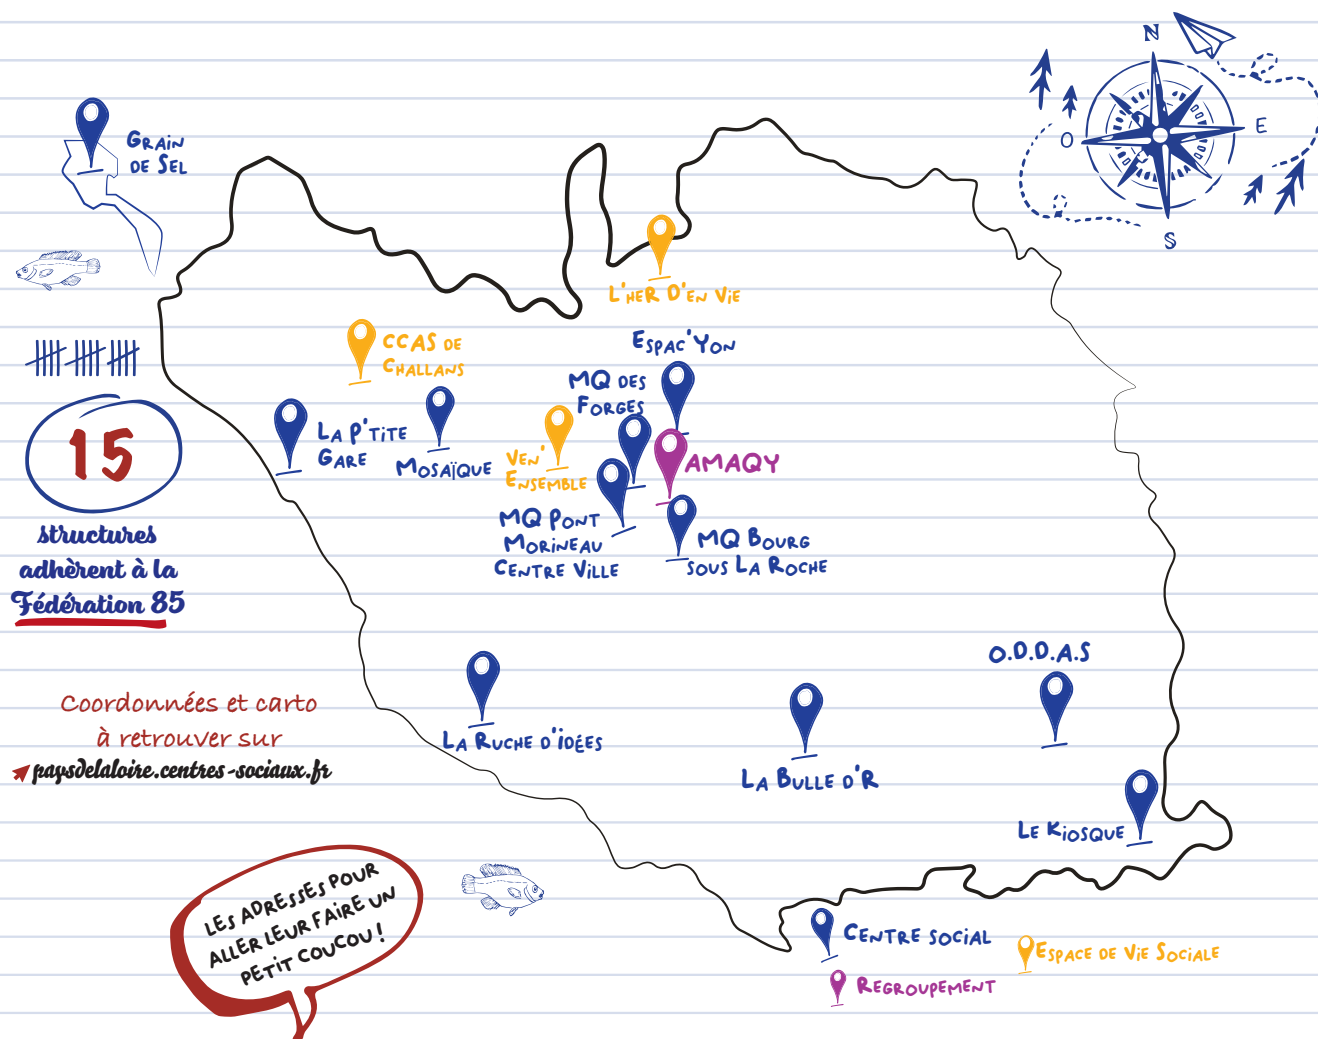 N
E
O
S
Grain
de Sel
L'Her d'en Vie
CCAS de
Challans
Espac'Yon
MQ des
Forges
La P'tite
Gare
Mosaïque
Ven'
Ensemble
AMAQY
MQ Pont
Morineau
Centre Ville
MQ Bourg
sous La Roche
15
structures
adhèrent à la
Fédération 85
O.D.D.A.S
Coordonnées et carto
à retrouver sur
paysdelaloire.centres-sociaux.fr
La Ruche d'idées
La Bulle d'R
Le Kiosque
Les adresses pour
aller leur faire un
petit coucou !
Centre social
Espace de Vie Sociale
Regroupement